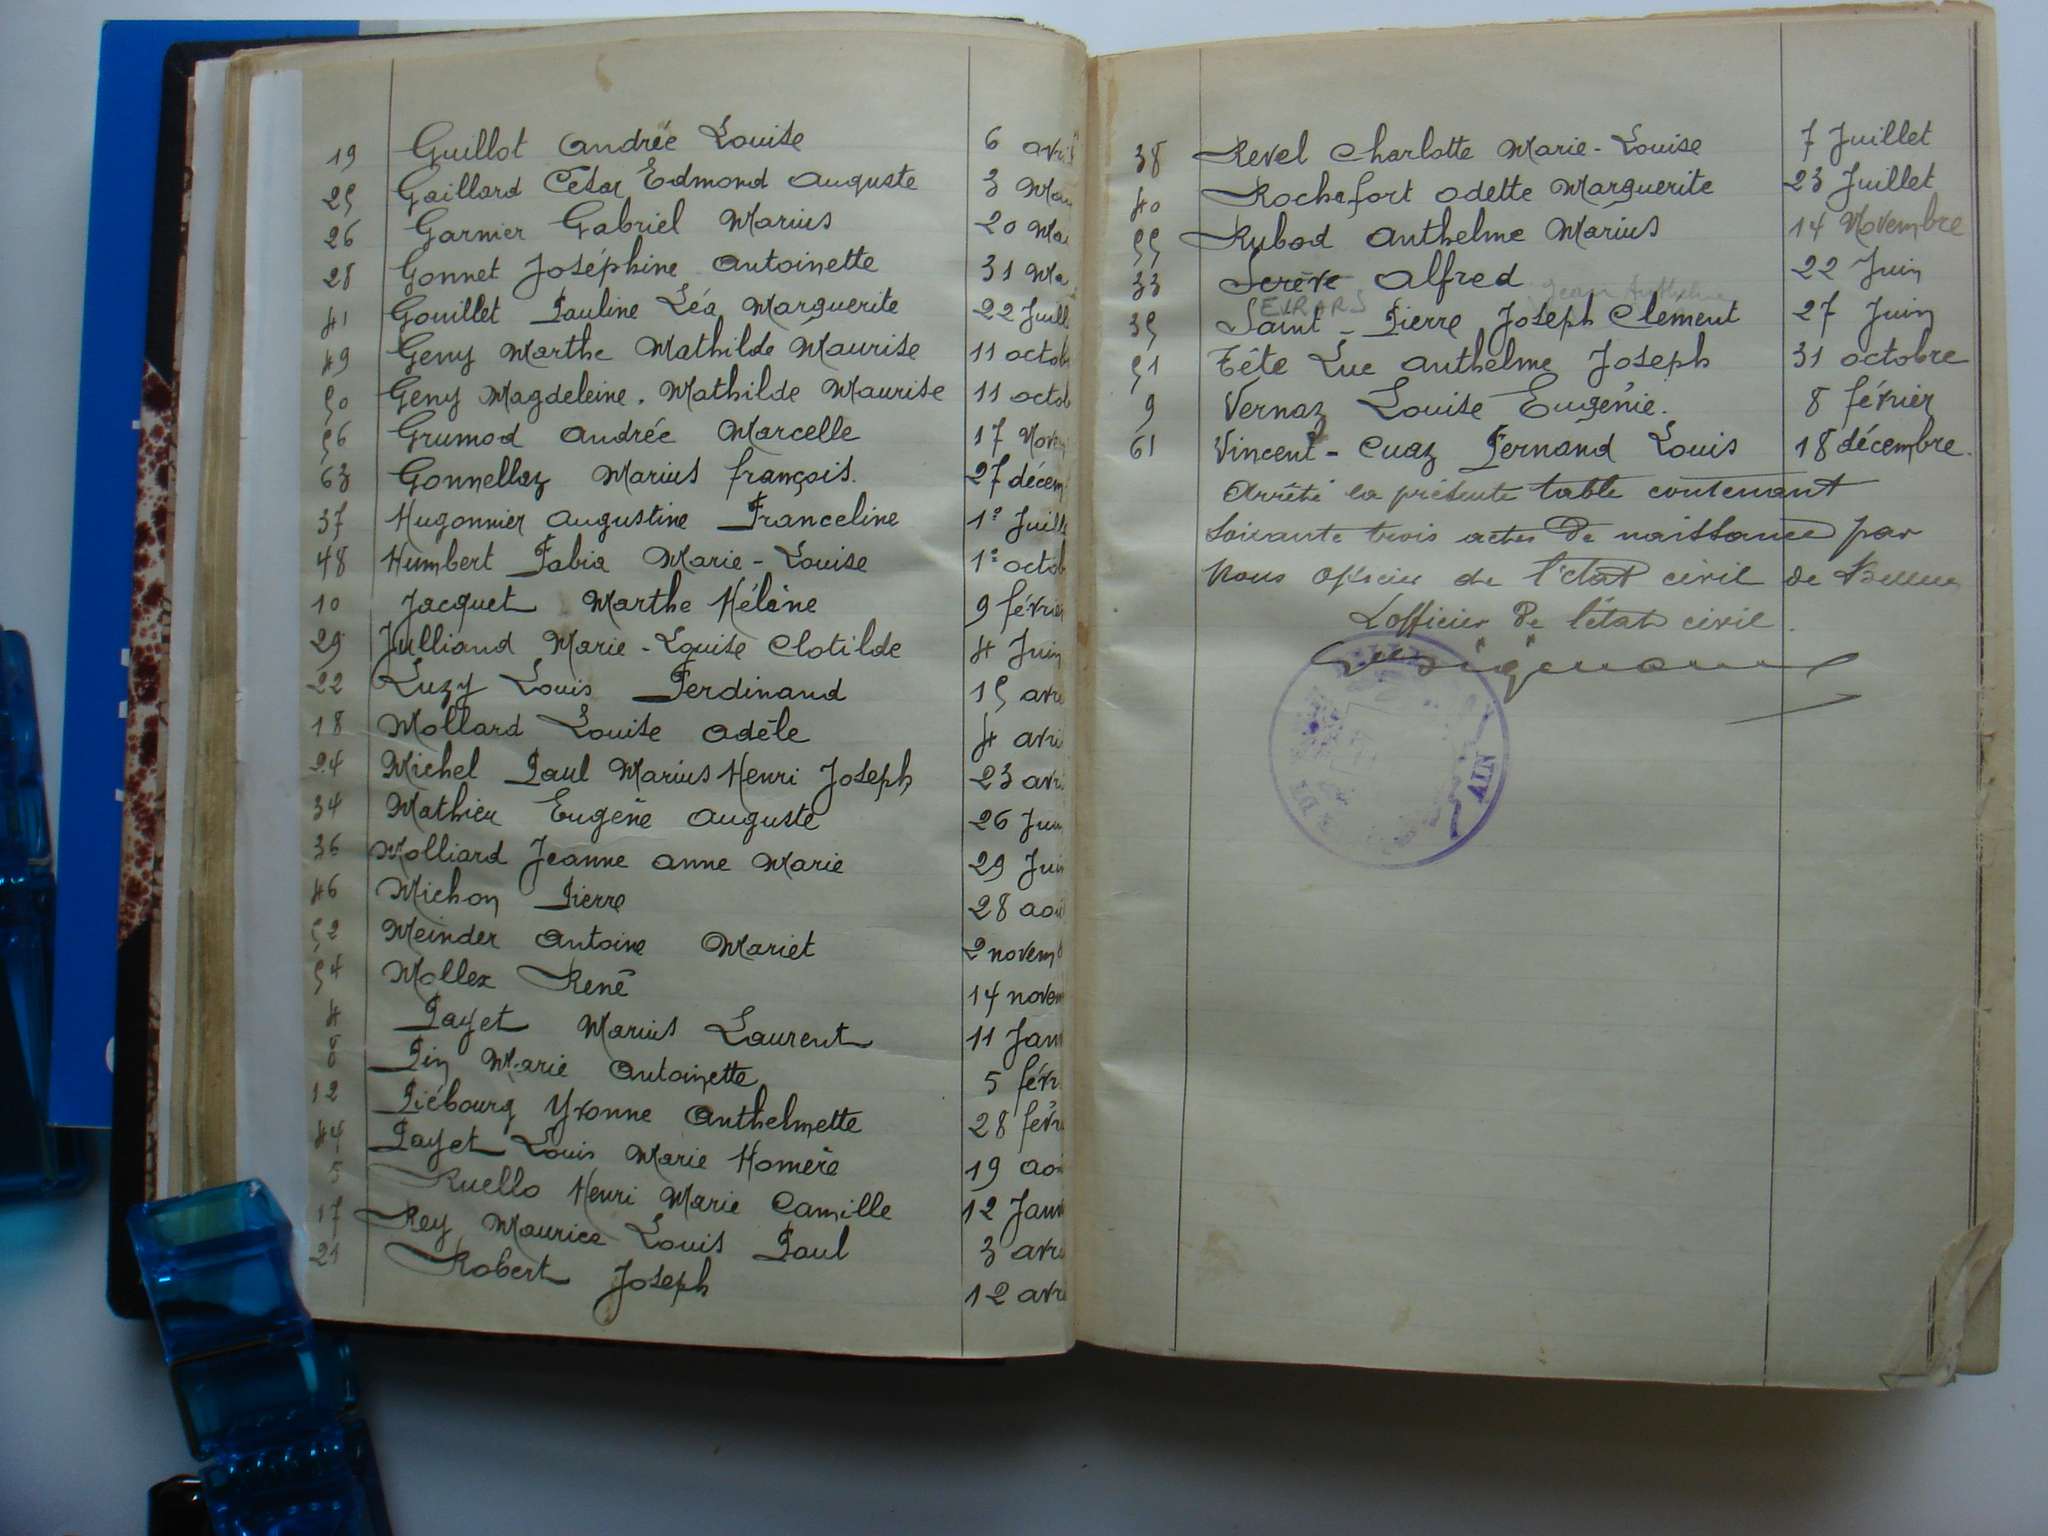 19 Guillot Andrée Louise 6 avri
25 Gaillard César Edmond Auguste 3 Mai
26 Garnier Gabriel Marius 20 Mai
28 Gonnet Joséphine Antoinette 31 Ma
41 Gouillet Pauline Léa Marguerite 22 Juill
49 Geny Marthe Mathilde Maurise 11 octob
50 Geny Magdeleine. Mathilde Maurise 11 octob
56 Grumod Andrée Marcelle 17 Novem
63 Gonnellaz Marius françois. 27 décem
37 Hugonnier Augustine Franceline 1º Juill
48 Humbert Fabia Marie-Louise 1º octob
10 Jacquet Marthe Hélène 9 février
29 Julliand Marie-Louise Clotilde 4 Juin
22 Luzy Louis Ferdinand 15 avri
18 Mollard Louise Odèle 4 avri
24 Michel Paul Marius Henri Joseph 23 avri
34 Mathieu Eugène Auguste 26 Juin
36 Molliard Jeanne Anne Marie 29 Juin
46 Michon Pierre 28 aoû
52 Meinder Antoine Mariet 2 novemb
54 Mollex René 14 novem
4 Payet Marius Laurent 11 Janv
8 Pin Marie Antoinette 5 févr
12 Piébourg Yvonne Anthelmette 28 févri
44 Payet Louis Marie Homère 19 aoû
5 Ruello Henri Marie Camille 12 Janv
17 Rey Maurice Louis Paul 3 avri
21 Robert Joseph 12 avri
38 Revel Charlotte Marie-Louise 7 Juillet
40 Rochefort Odette Marguerite 23 Juillet
55 Rubod Anthelme Marius 14 Novembre
33 Serève Alfred 22 Juin
Jean Anthelme
35 Saint-Pierre Joseph Clement 27 Juin
51 Tête Luc Anthelme Joseph 31 octobre
9 Vernaz Louise Eugénie. 8 février
61 Vincent-Cuaz Fernand Louis 18 décembre.
Arrêté la présente table contenant
soixante trois actes de naissance par
Nous officier de l'état civil de
L'officier de l'état civil.
AIN